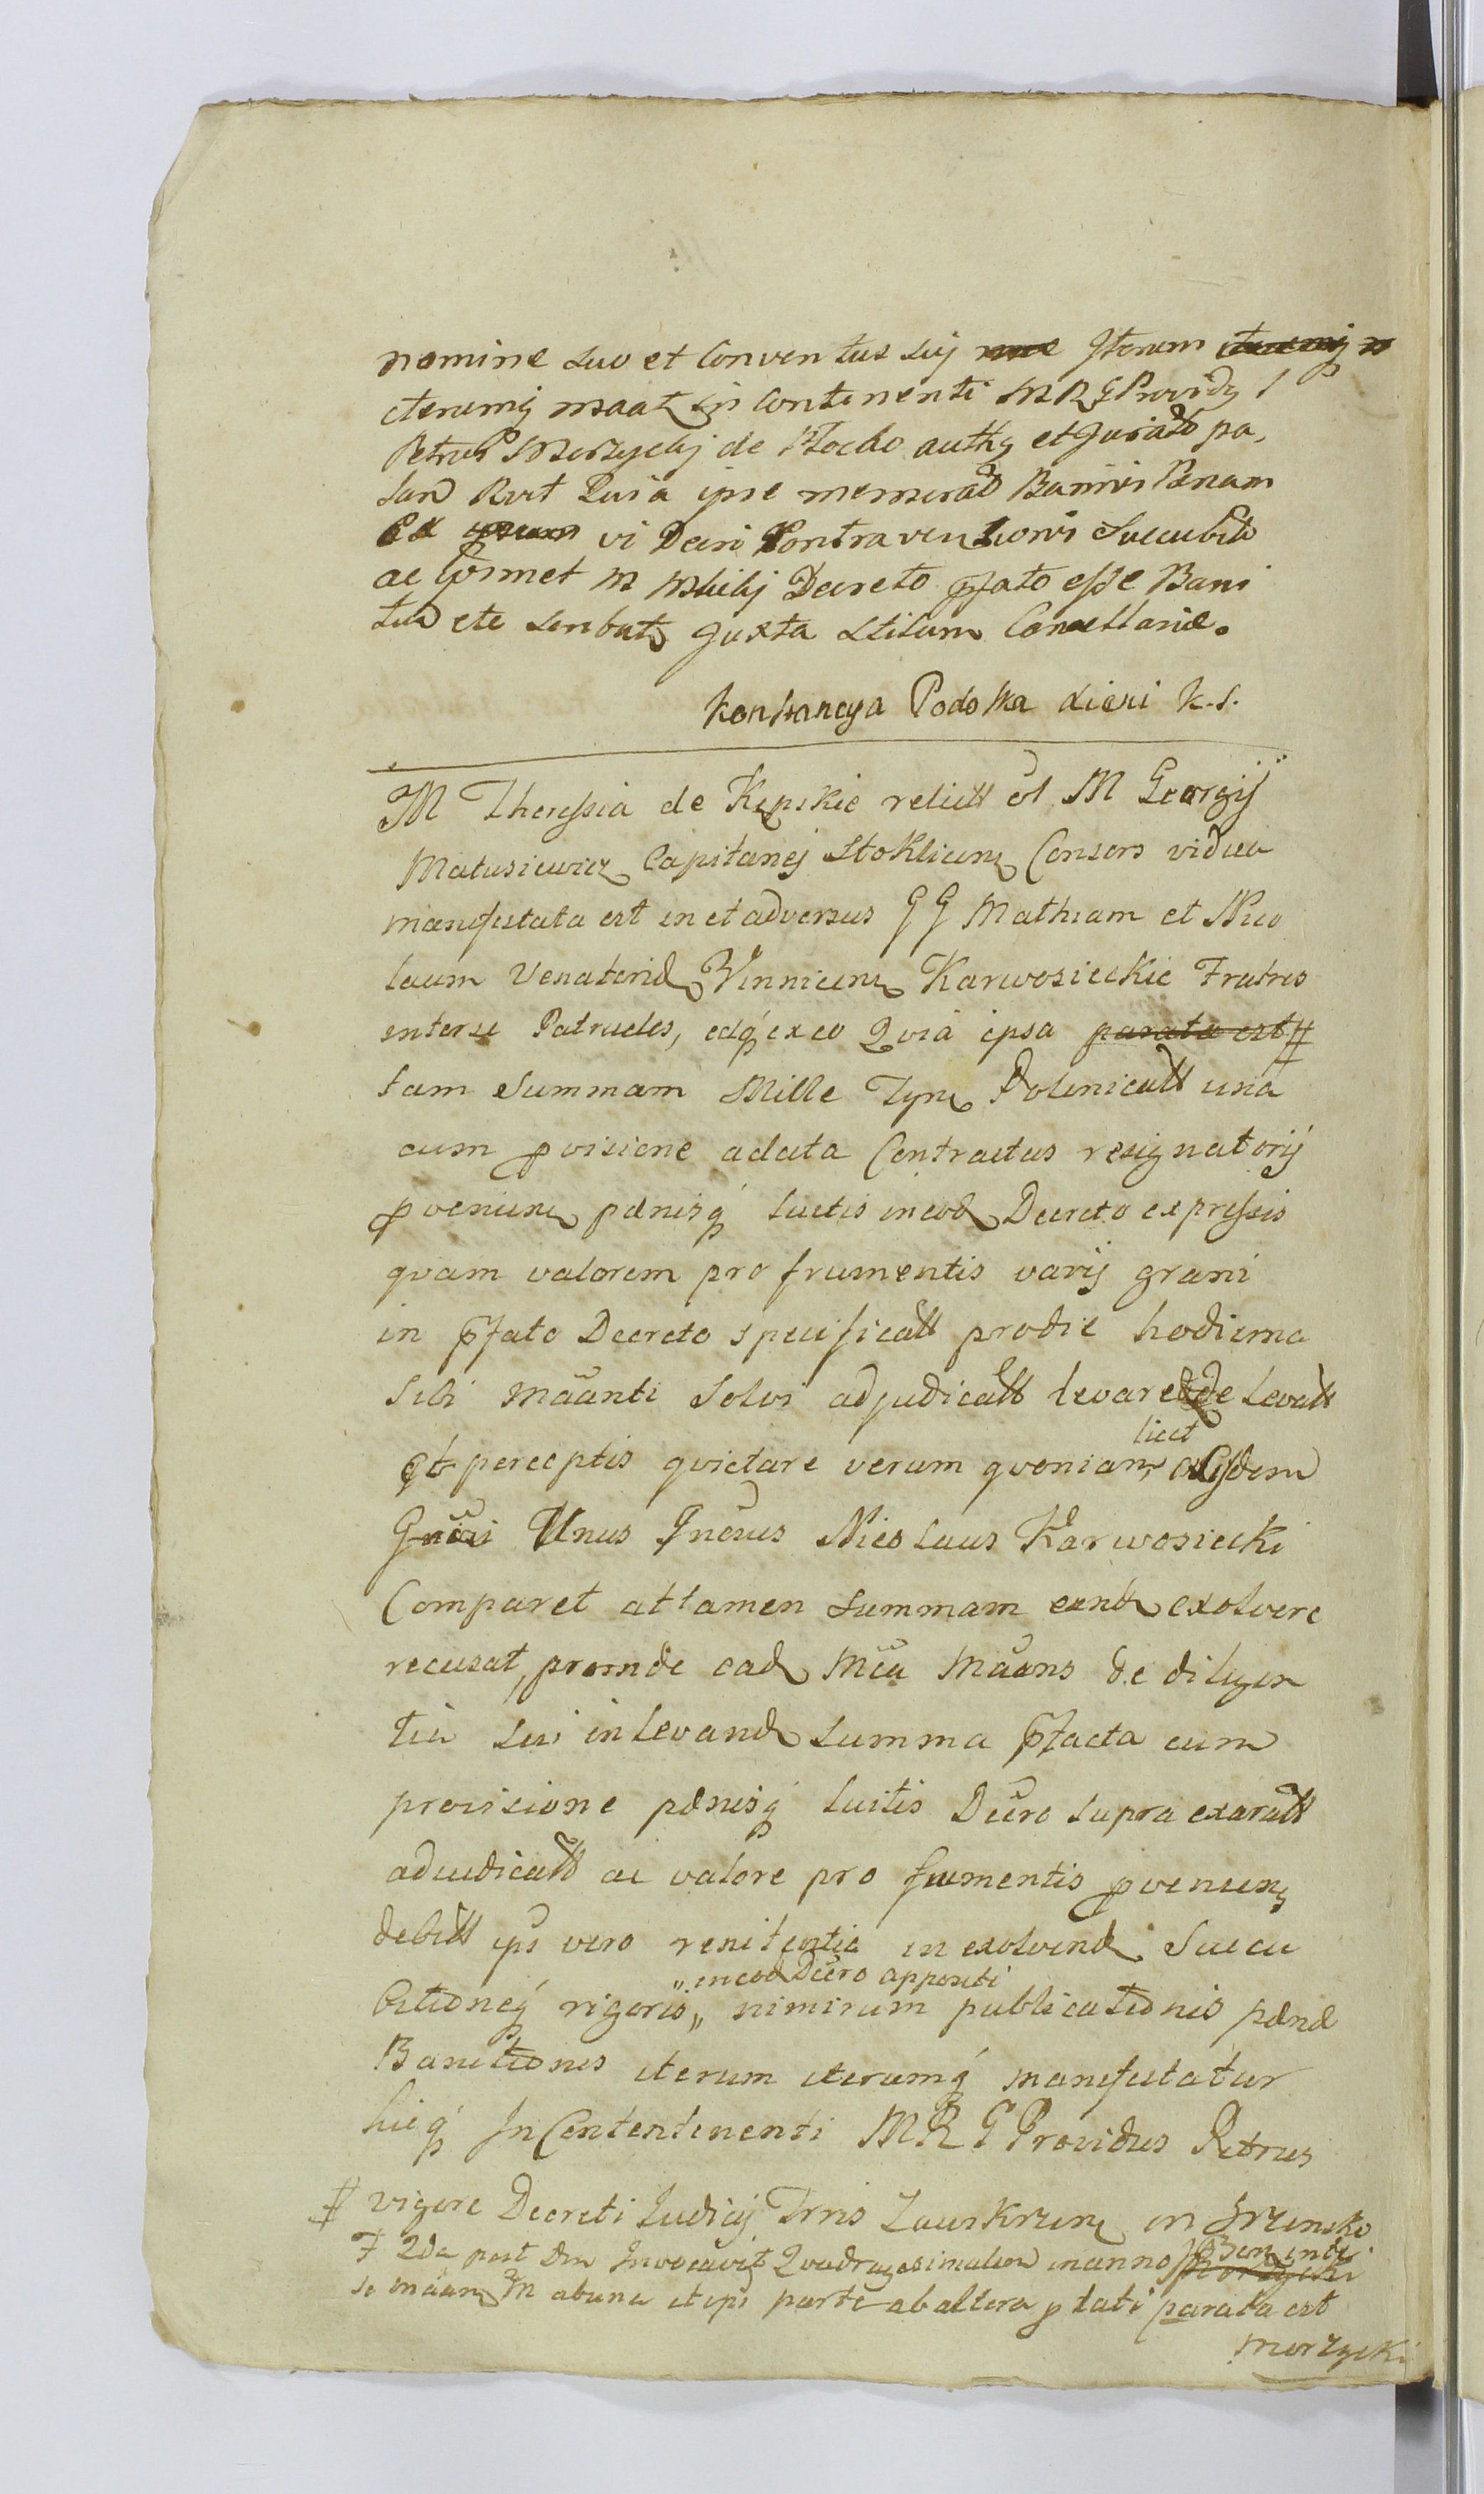 nomine suo et Conventus sui Iterum
iterumq maat in Continenti M R G Providq
Petrus Morzycki de Plocko authq et Jurato pa,
lan Rvit Quia ipse memorat Banivi Panam
Ex vi Decri Contraventionis Succubito
ac Cosmet M Decreto pfato esse Bani
tus etc scribatq Juxta Stilum Cancellariæ.
Konstancya Podoska dicri k.s.
M Theressia de Kępskie relictt ol M Georgij
Matusiewicz Capitanej Stokliczenq Consors vidua
manifestata est in et adversus G G Mathiam et Nico
laum Venatorid Winnicenq Karwosieckie Fratres
inter se Patrueles, idq ex eo Quia ipsa parata est #
tam Summam Mille Tynq Polonicatt una
cum pvisione a data Contractus resignatorij
pvenienq pænisq luctis in eod Decreto expressis
qvam valorem pro frumentis varij grani
in pfato Decreto specificatt pro die hodierna
Sibi mãanti Solvi adjudicatt levare et de levatt
et perceptis qvietare verum qvoniam licet exijsdem
Gnãri Unus Gnosus Nicolaus Karwosiecki
Comparet attamen Summam eand exolvere
recusat, proinde ead Mca Mãans de diligen
tia sui in levand Summa pfacta cum
provisione pænisq luitis Decro supra exaratt
adiudicatt ac valore pro frumentis pvenienq
debitt ipi vero renitentia in exolvend Succu
bitioneq rigoris „ in eod Decro appositi „ nimirum publicationis pænæ
Banitionis iterum iterumq manifestatur
hicq In Contentinenti M R G Providus Petrus
# vigore Decreti Judicij Trris Zawskrzenq in Srzensko
F 2da post Dni Invocavit Quadragesimalem in anno
se mãanq M ab una et ipi parte ab altera lati parata est
Morzycki